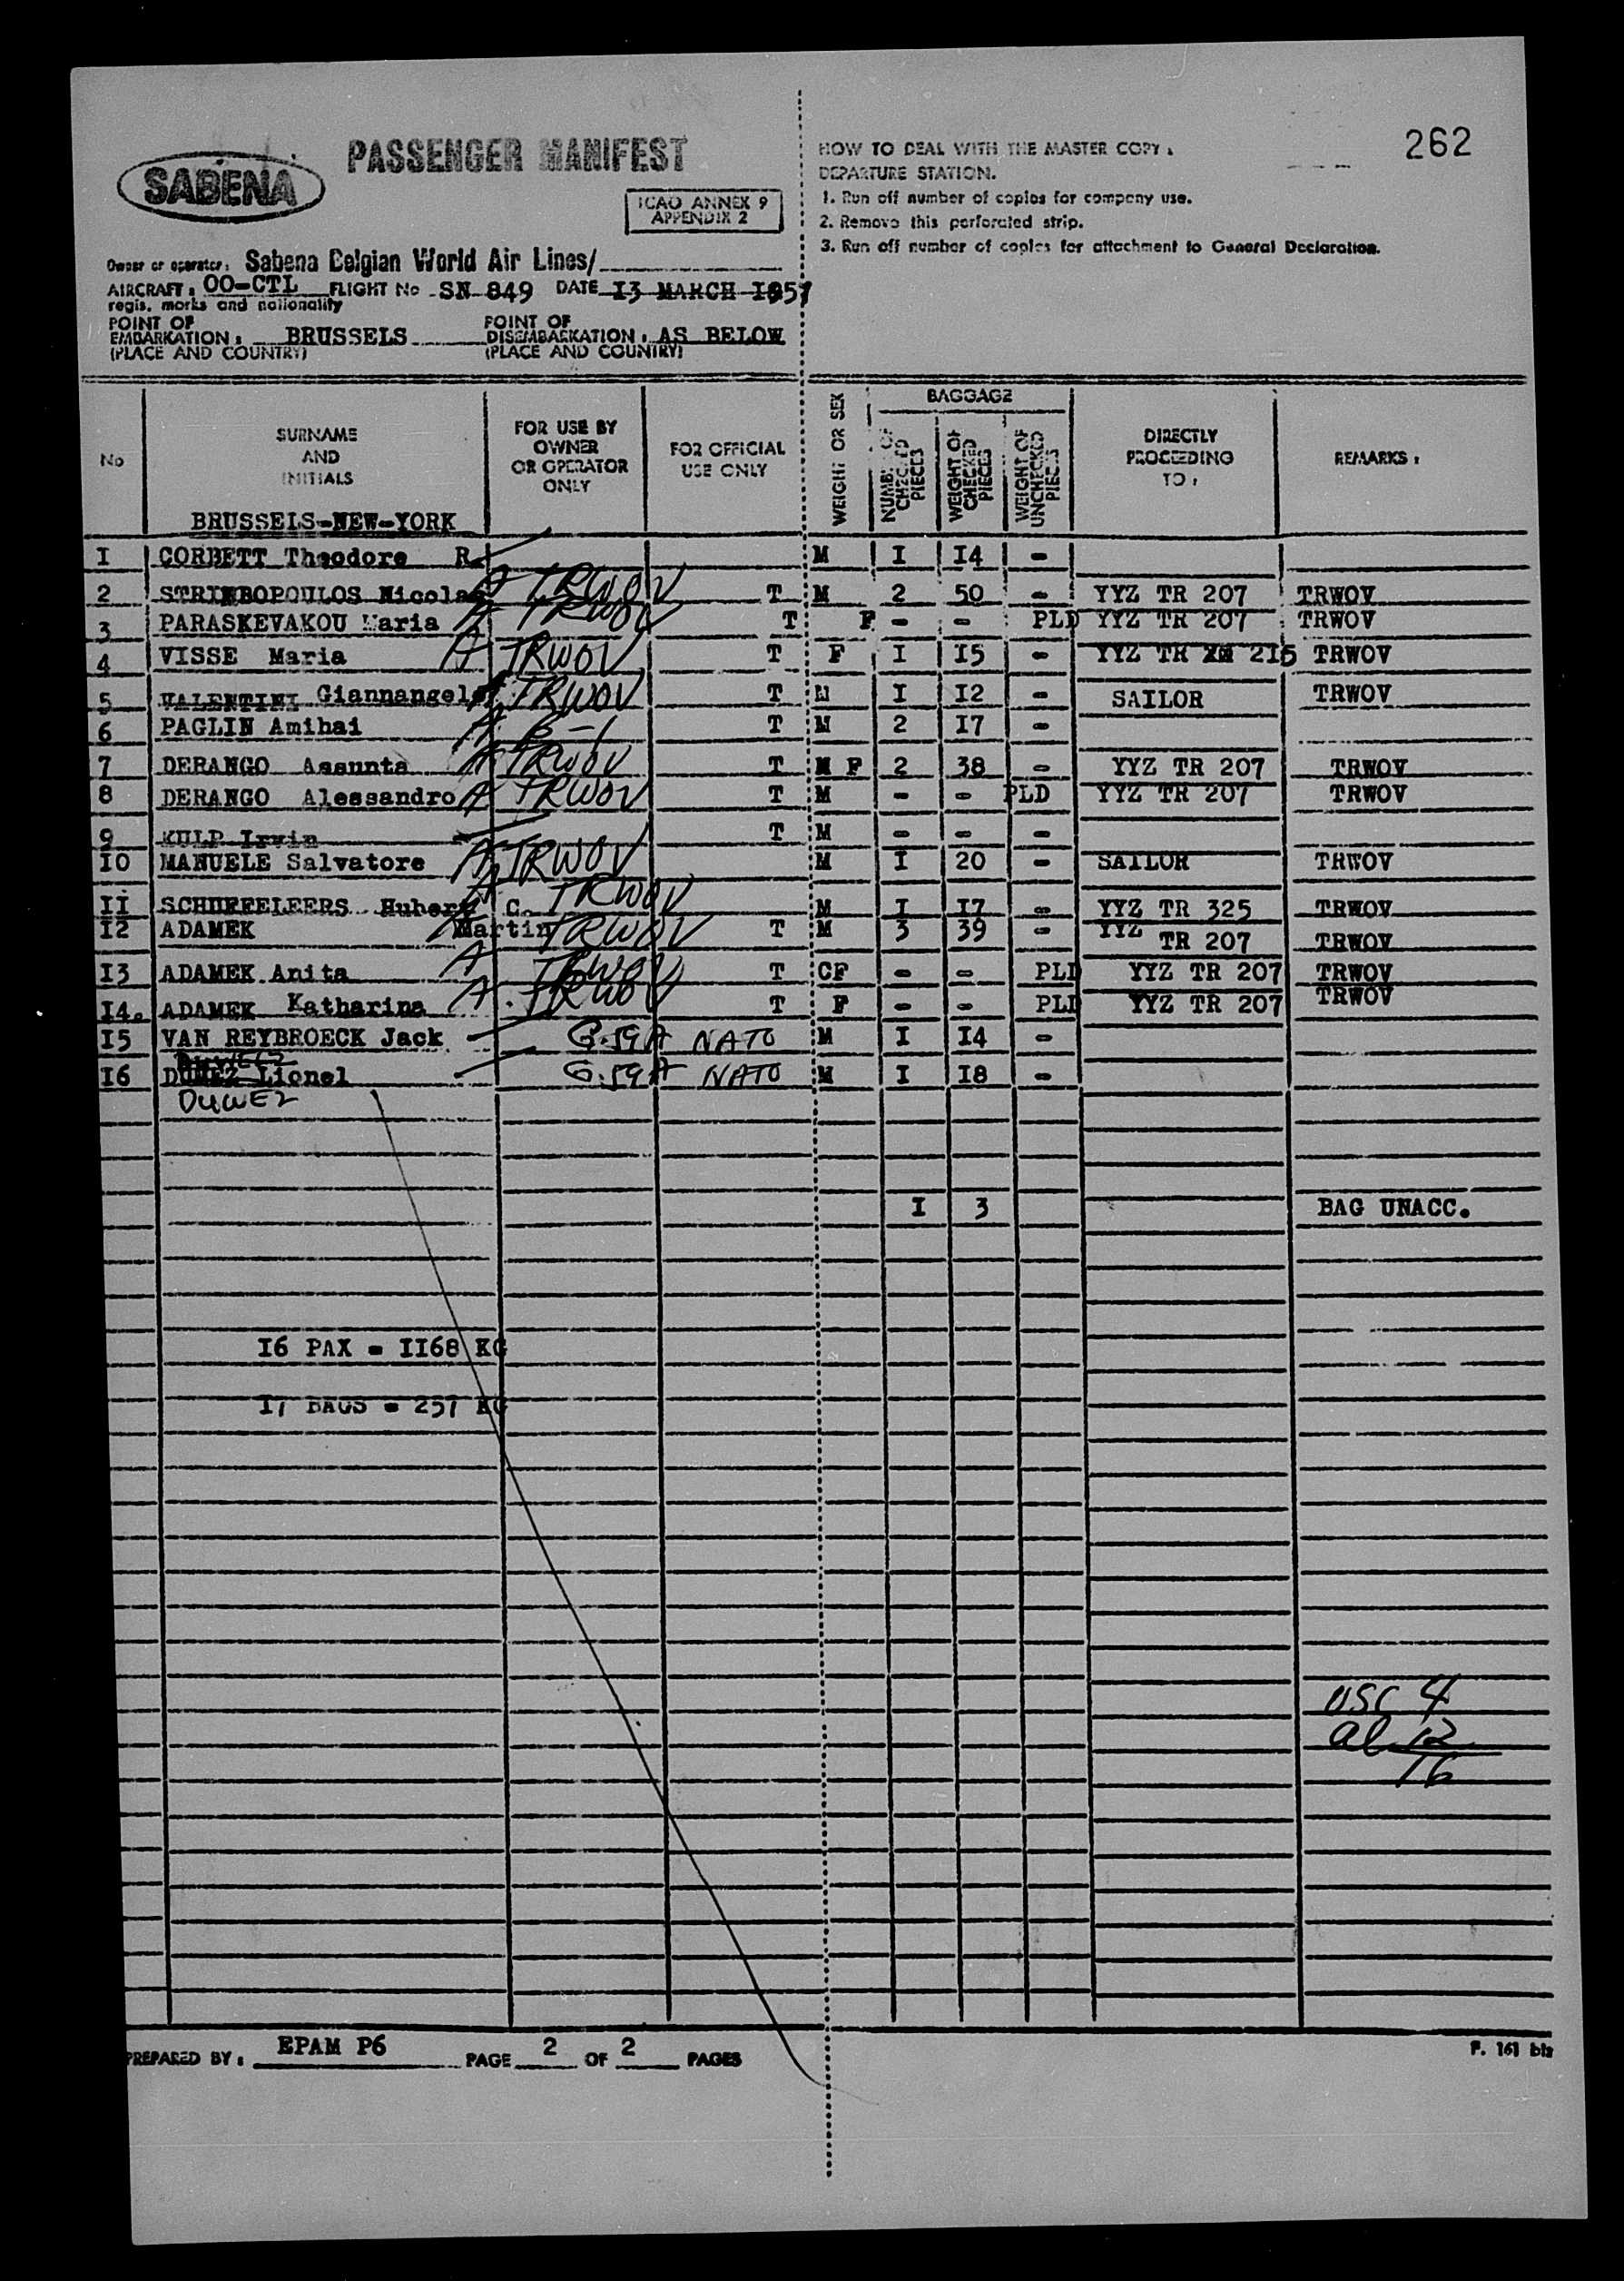 262
SABENA
PASSENGER MANIFEST
ICAO ANNEX 9
APPENDIX 2
HOW TO DEAL WITH THE MASTER COPY :
DEPARTURE STATION.
1. Run off number of copies for company use.
2. Remove this perforated strip.
3. Run off number of copies for attachment to General Declaration.
Owner or operator: Sabena Belgian World Air Lines/
AIRCRAFT: OO-CTL FLIGHT No SN 849 DATE I3 MARCH I957
regis. marks and nationality
POINT OF EMBARKATION: BRUSSELS POINT OF DISEMBARKATION: AS BELOW
(PLACE AND COUNTRY) (PLACE AND COUNTRY)
No
SURNAME AND INITIALS
FOR USE BY OWNER OR OPERATOR ONLY
FOR OFFICIAL USE ONLY
WEIGHT OR SEX
BAGGAGE
NUMBER OF CHECKED PIECES
WEIGHT OF CHECKED PIECES
WEIGHT OF UNCHECKED PIECES
DIRECTLY PROCEEDING TO :
REMARKS :
BRUSSELS-NEW-YORK
I CORBETT Theodore R. M I I4 -
2 STRIMBOPOULOS Nicolas A TRWOV T M 2 50 - YYZ TR 207 TRWOV
3 PARASKEVAKOU Maria A TRWOV T F - - PLD YYZ TR 207 TRWOV
4 VISSE Maria A TRWOV T F I I5 - YYZ TR 2I5 TRWOV
5 VALENTINI Giannangelo A TRWOV T M I I2 - SAILOR TRWOV
6 PAGLIN Amihai A B-1 T M 2 I7 -
7 DERANGO Assunta A TRWOV T M F 2 38 - YYZ TR 207 TRWOV
8 DERANGO Alessandro A TRWOV T M - - PLD YYZ TR 207 TRWOV
9 KULP Irwin T M - - -
I0 MANUELE Salvatore A TRWOV M I 20 - SAILOR TRWOV
II SCHUEFELEERS Hubert C. A TRWOV M I I7 - YYZ TR 325 TRWOV
I2 ADAMEK Martin A TRWOV T M 3 39 - YYZ TR 207 TRWOV
I3 ADAMEK Anita A TRWOV T CF - - PLD YYZ TR 207 TRWOV
I4. ADAMEK Katharina A TRWOV T F - - PLD YYZ TR 207 TRWOV
I5 VAN REYBROECK Jack G.59A NATO M I I4 -
I6 Lionel G.59A NATO M I I8 -
DUWEZ
I 3 BAG UNACC.
I6 PAX = II68 KG
I7 BAGS = 257 KG
USC 4
al 12
16
PREPARED BY: EPAM P6 PAGE 2 OF 2 PAGES
F. 161 bis